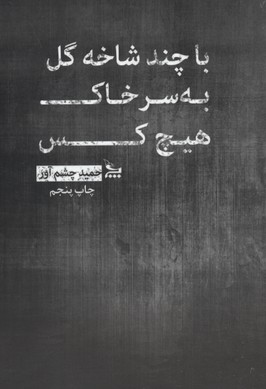 با چند شاخه گل
به سر خاک
هیچ کس
حمید چشم آور
چاپ پنجم